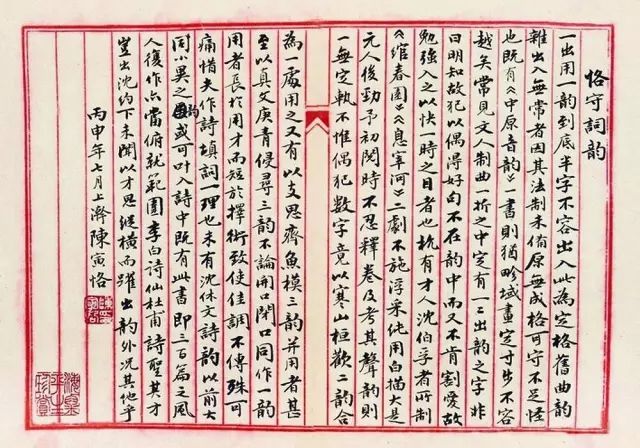 恪守詞韵
一出用一韵到底半字不容出入此為定格舊曲韵
雜出入無常者因其法制未備原無成格可守不足怪
也既有《中原音韵》一書則猶畛域畫定寸步不容
越矣常見文人制曲一折之中定有一二出韵之字非
曰明知故犯以偶得好句不在韵中而又不肯割愛故
勉強入之以快一時之目者也杭有才人沈伯孚者所制
《綰春園》《息宰河》二劇不施浮采純用白描大是
元人後勁予初閱時不忍釋卷及考其聲韵則
一無定軌不惟偶犯數字竟以寒山桓歡二韵合
為一處用之又有以支思齊魚模三韵並用者甚
至以真文庚青侵尋三韵不論開口閉口同作一韵
用者長於用才而短於擇術致使佳調不傳殊可
痛惜夫作詩填詞一理也未有沈休文詩韵以前大
同小異之韵或可叶入詩中既有此書即三百篇之風
人復作亦當俯就範圍李白詩仙杜甫詩聖其才
豈出沈約下未聞以才思縱橫而躍出韵外況其他乎
丙申年七月上澣陳寅恪